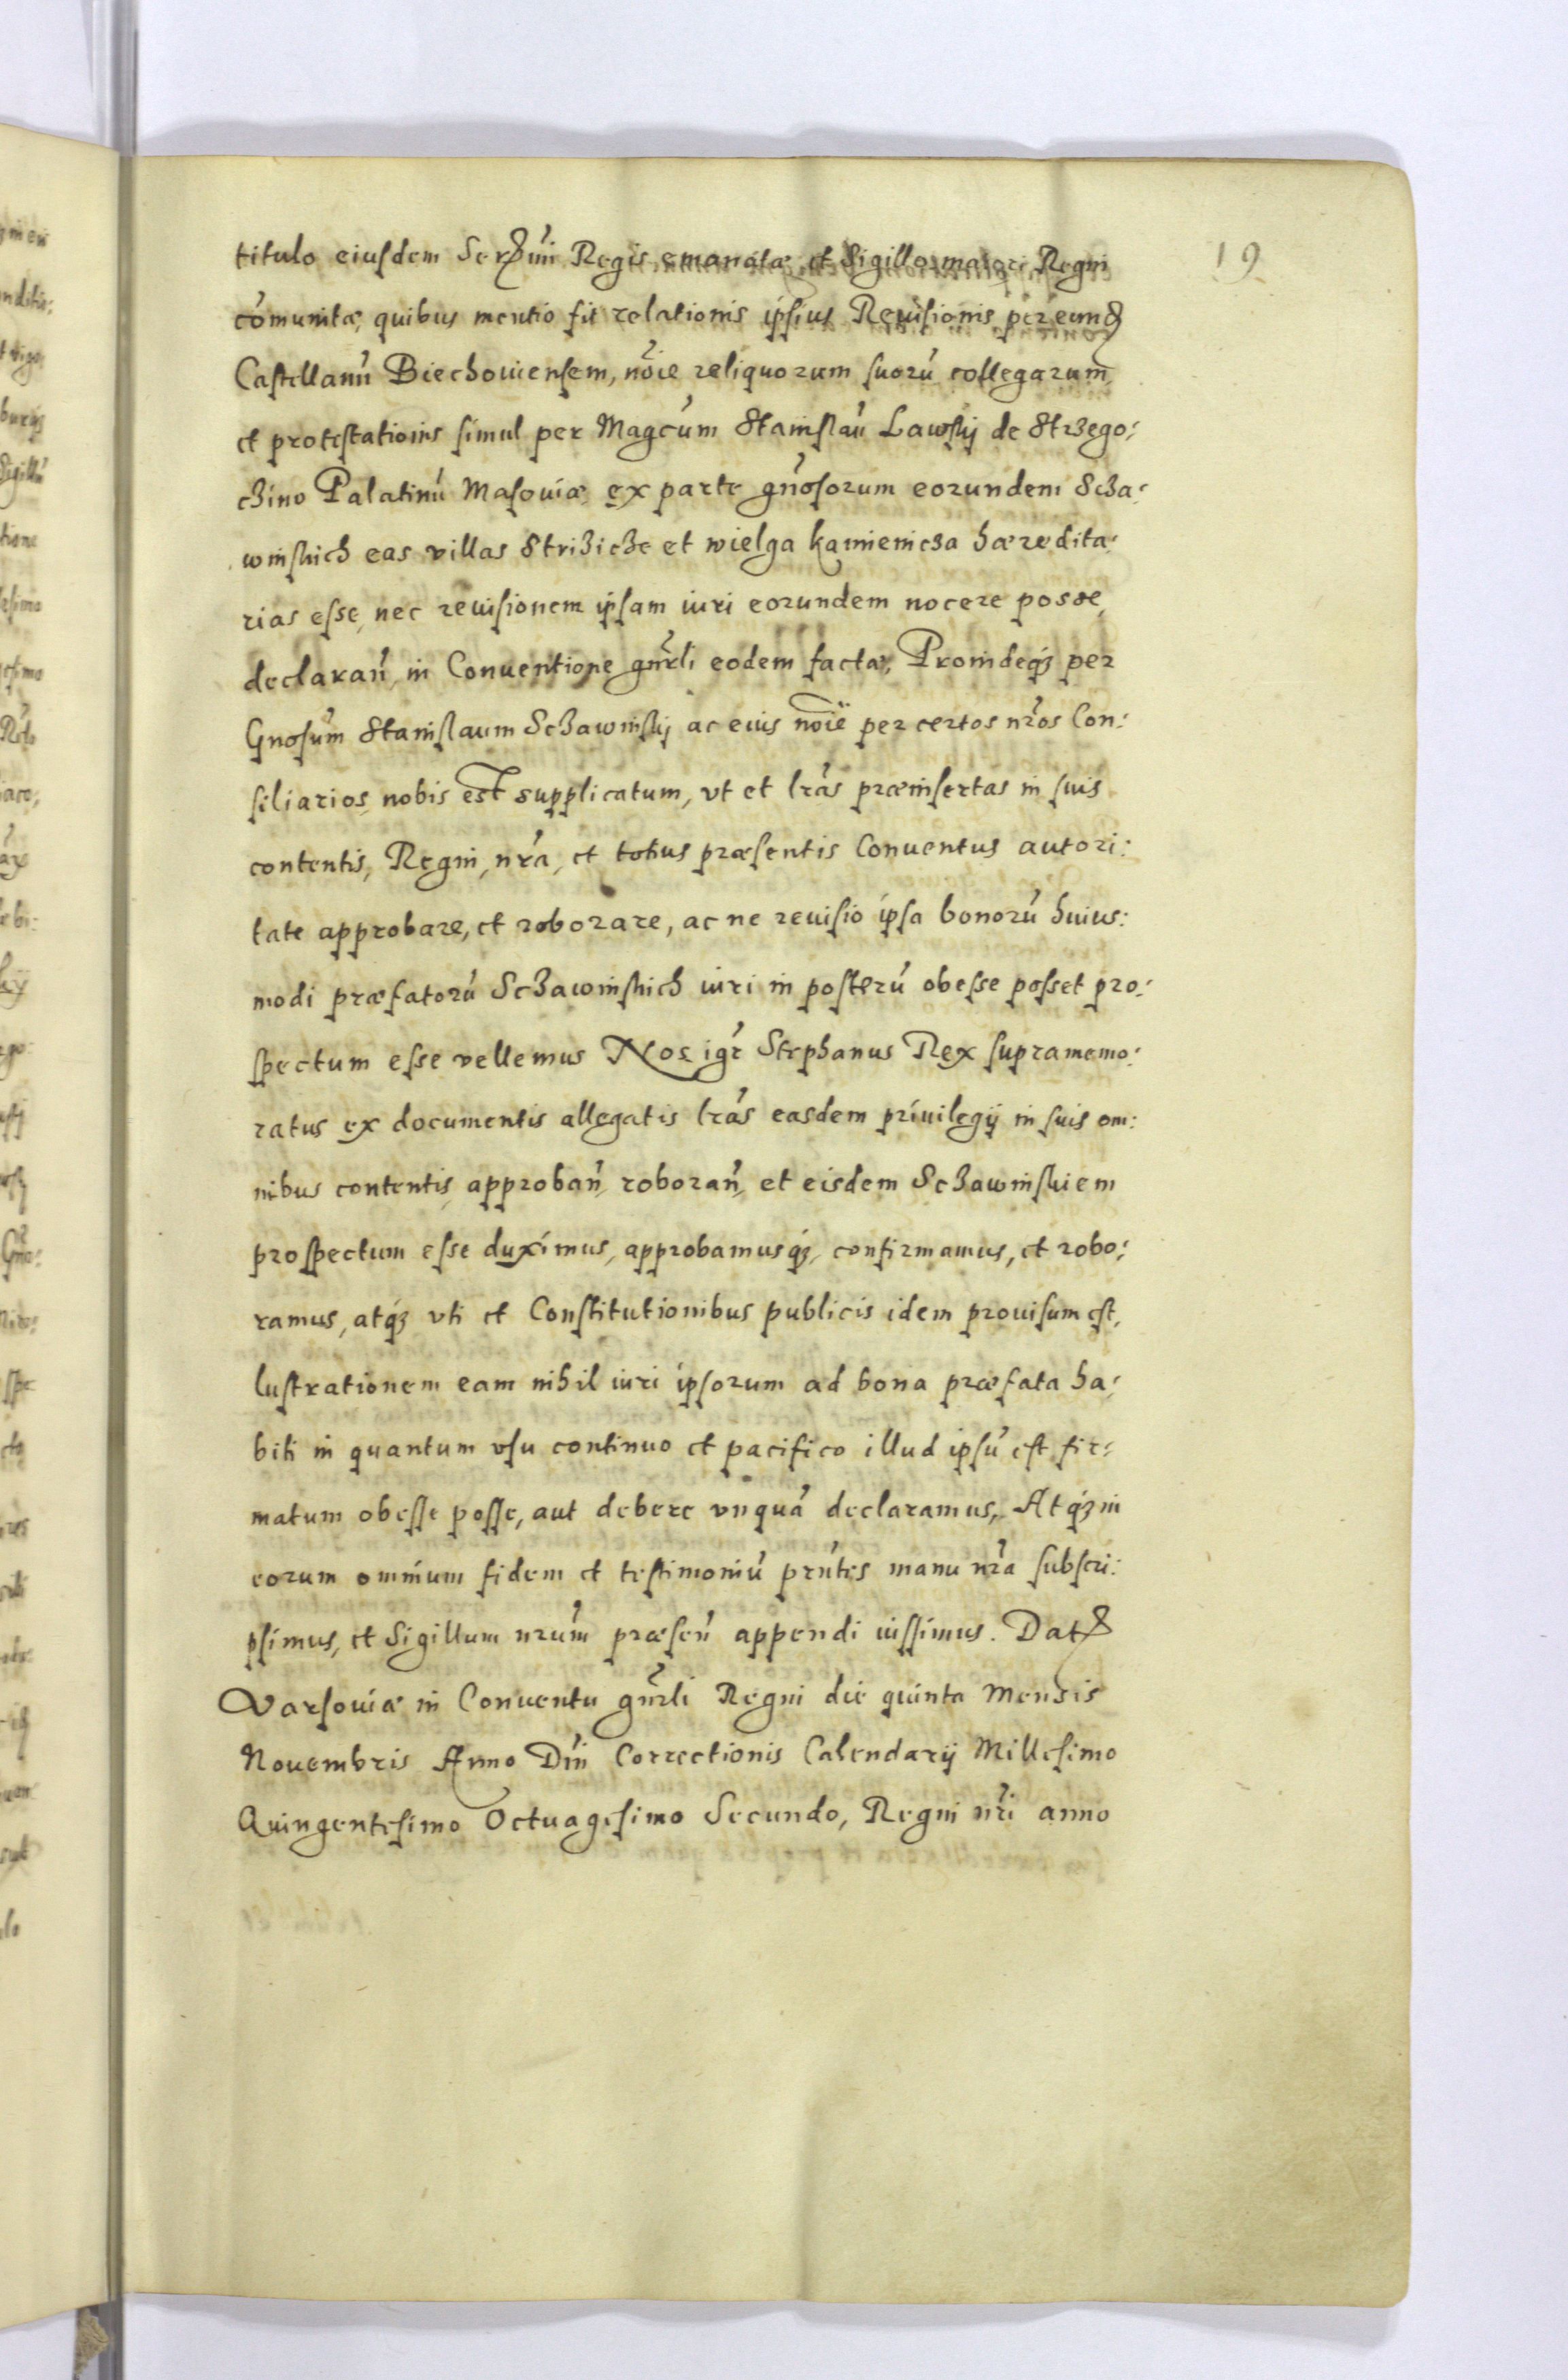 19
titulo eiusdem Sermi Regis emanatæ et Sigillo maiori Regni
cõmunitæ, quibus mentio fit relationis ipsius Reuisionis per eund
Castellanũ Biechouiensem, nõie reliquorum suorũ collegarum,
et protestationis simul per Magcũm Stanislaũ Lawskij de Strzego:
czino Palatinũ Masouiæ, ex parte gñosorum eorundem Scza:
winskich eas villas Strizicze et wielga kamienicza hæredita:
rias esse, nec reuisionem ipsam iuri eorundem nocere posse,
declarañ, in Conuentione gñrli eodem factæ, Proindeqꝫ per
Gnosũm Stanislaum Sczawinskij ac eius nõie per certos nr̃os Con:
siliarios nobis est supplicatum, vt et lrãs præinsertas in suis
contentis, Regni, nrã, et totius præsentis Conuentus autori:
tate approbare, et roborare, ac ne reuisio ipsa bonorũ huius:
modi præfatorũ Sczawinskich iuri in posterũ obesse posset pro:
spectum esse vellemus Nos igr̃ Stephanus Rex supramemo:
ratus ex documentis allegatis lrãs easdem priuilegij in suis om:
nibus contentis approbañ, roborañ, et eisdem Sczawinskiem
prospectum esse duximus, approbamusqꝫ, confirmamus, et robo:
ramus, atqꝫ vti et Constitutionibus publicis idem prouisum est,
lustrationem eam nihil iuri ipsorum ad bona præfata ha:
biti in quantum vsu continuo et pacifico illud ipsũ est fir:
matum obesse posse, aut debere vnquã declaramus, Atqꝫ in
eorum omnium fidem et testimoniũ prñtes manu nrã subscri:
psimus, et Sigillum nrũm præseñ appendi iussimus. Dat
Varsouiæ in Conuentu gñrli Regni die quinta Mensis
Nouembris Anno Dñi Correctionis Calendarij Millesimo
Quingentesimo Octuagesimo Secundo, Regni nr̃i anno